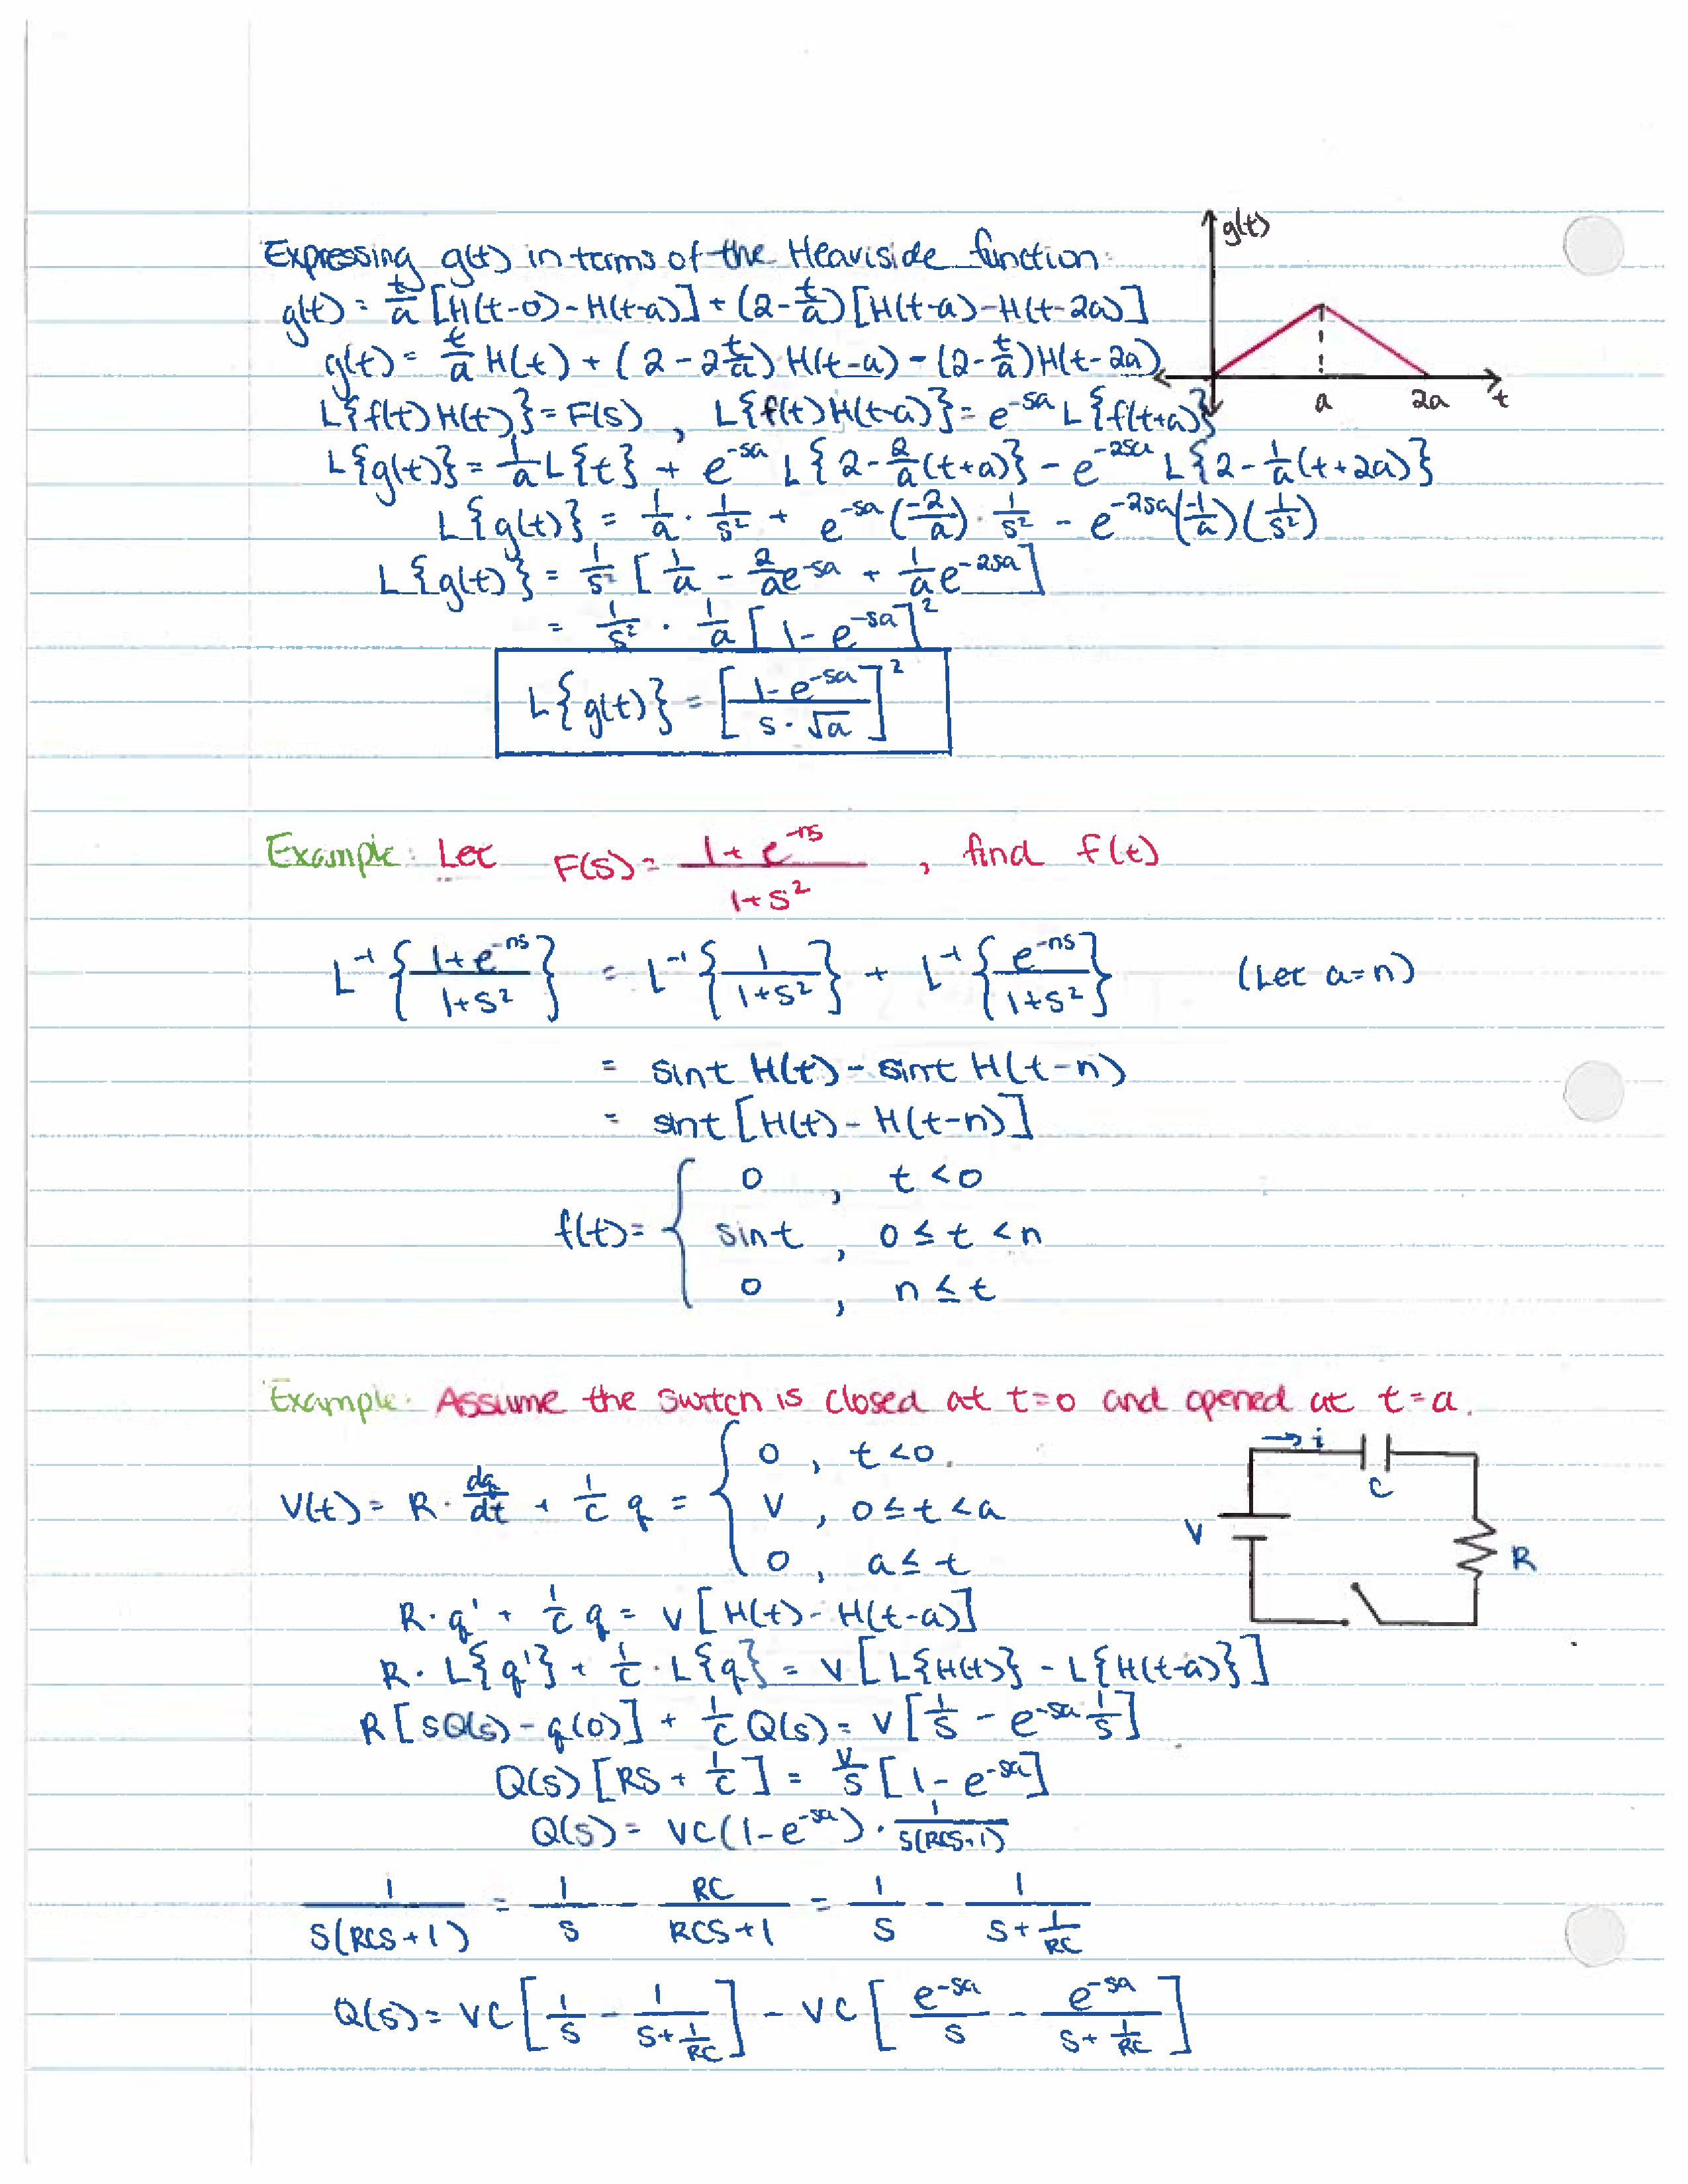 Expressing g(t) in terms of the Heaviside function:
g(t) = t/a [H(t-0) - H(t-a)] + (2 - t/a) [H(t-a) - H(t-2a)]
g(t) = t/a H(t) + (2 - 2t/a) H(t-a) - (2 - t/a) H(t-2a)
L{f(t) H(t)} = F(s) , L{f(t) H(t-a)} = e^-sa L{f(t+a)}
L{g(t)} = 1/a L{t} + e^-sa L{2 - 2/a (t+a)} - e^-2sa L{2 - 1/a (t+2a)}
L{g(t)} = 1/a · 1/s² + e^-sa (-2/a) · 1/s² - e^-2sa (-1/a) (1/s²)
L{g(t)} = 1/s² [1/a - 2/a e^-sa + 1/a e^-2sa]
= 1/s² · 1/a [1 - e^-sa]²
L{g(t)} = [(1 - e^-sa)/(s·√a)]²
g(t)
a 2a t
Example: Let F(s) = (1 + e^-πs)/(1 + s²) , find f(t)
L⁻¹{(1 + e^-πs)/(1 + s²)} = L⁻¹{1/(1 + s²)} + L⁻¹{e^-πs/(1 + s²)} (Let a = π)
= sint H(t) - sint H(t-π)
= sint [H(t) - H(t-π)]
f(t) = { 0 , t < 0
sint , 0 ≤ t < π
0 , π ≤ t
Example: Assume the switch is closed at t=0 and opened at t=a.
V(t) = R · dq/dt + 1/C q = { 0 , t < 0.
V , 0 ≤ t < a
0 , a ≤ t
→ i
C
V
R
R · q' + 1/C q = V [H(t) - H(t-a)]
R · L{q'} + 1/C · L{q} = V [L{H(t)} - L{H(t-a)}]
R [sQ(s) - q(0)] + 1/C Q(s) = V [1/s - e^-sa 1/s]
Q(s) [RS + 1/C] = V/s [1 - e^-sa]
Q(s) = VC (1 - e^-sa) · 1/(s(RCS+1))
1/(s(RCS+1)) = 1/s - RC/(RCS+1) = 1/s - 1/(s + 1/RC)
Q(s) = VC [1/s - 1/(s + 1/RC)] - VC [e^-sa/s - e^-sa/(s + 1/RC)]